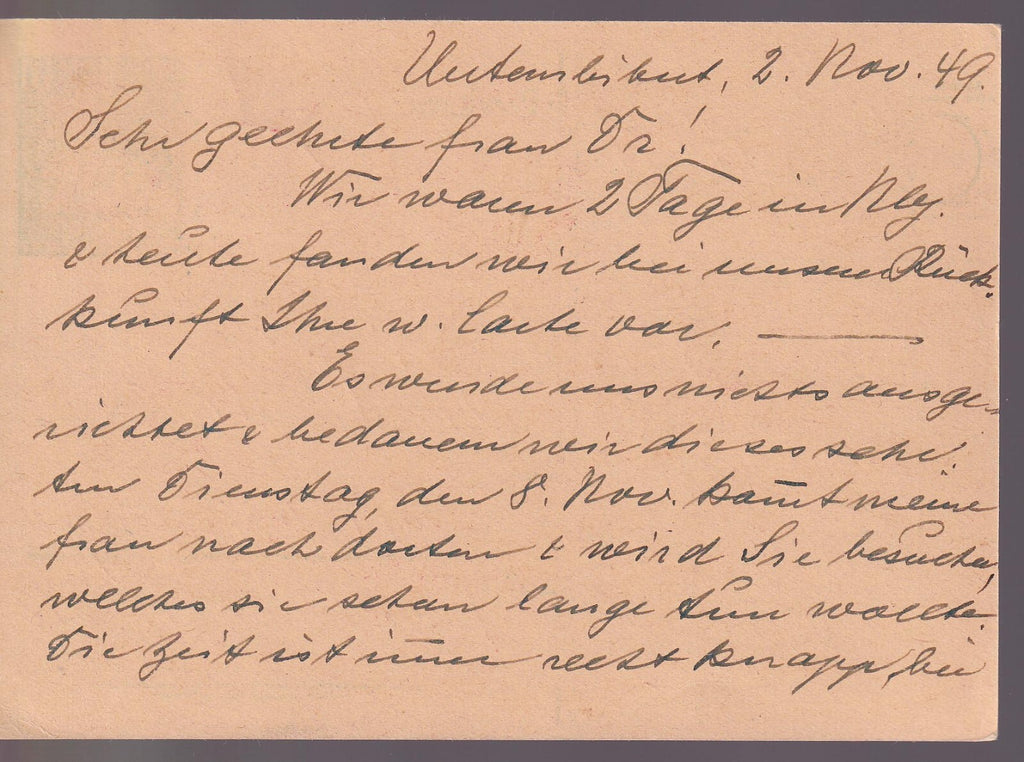 2. Nov. 49.
Sehr geehrte Frau Dr!
Wir waren 2 Tage in Nbg.
& heute fanden wir bei unserer Rück-
kunft Ihre w. Carte vor. ———
Es wurde uns nichts ausge-
richtet & bedauern wir dieses sehr.
Am Dienstag, den 8. Nov. kom̄t meine
Frau nach dorten & wird Sie besuchen,
welches sie schon lange tun wollte.
Die Zeit ist im̄er recht knapp, bei